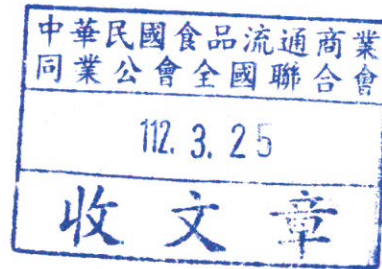 中華民國食品流通商業
同業公會全國聯合會
112. 3. 25
收文章